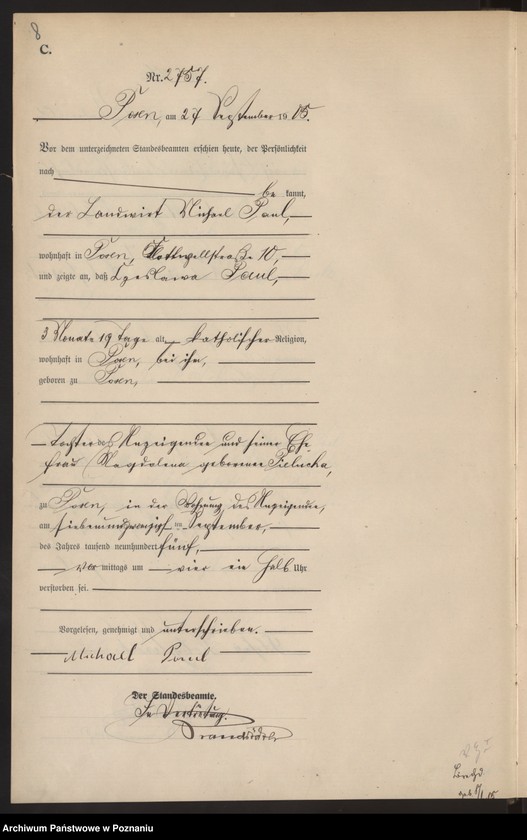 8
C.
Nr. 2757.
Posen, am 27 September 1905.
Vor dem unterzeichneten Standesbeamten erschien heute, der Persönlichkeit
nach
be kannt,
der Landwirt Michael Paul,
wohnhaft in Posen, straße 10,
und zeigte an, daß Czeslawa Paul,
3 Monate 19 Tage alt, katholischer Religion,
wohnhaft in Posen, bei ihm,
geboren zu Posen,
Tochter des Anzeigenden und seiner Ehe-
frau Magdalena geborenen Pielucha,
zu Posen, in der Wohnung des Anzeigenden,
am siebenundzwanzigsten September,
des Jahres tausend neunhundert fünf,
Vor mittags um vier ein halb Uhr
verstorben sei.
Vorgelesen, genehmigt und unterschrieben.
Michael Paul
Der Standesbeamte.
In Vertretung.
Archiwum Państwowe w Poznaniu